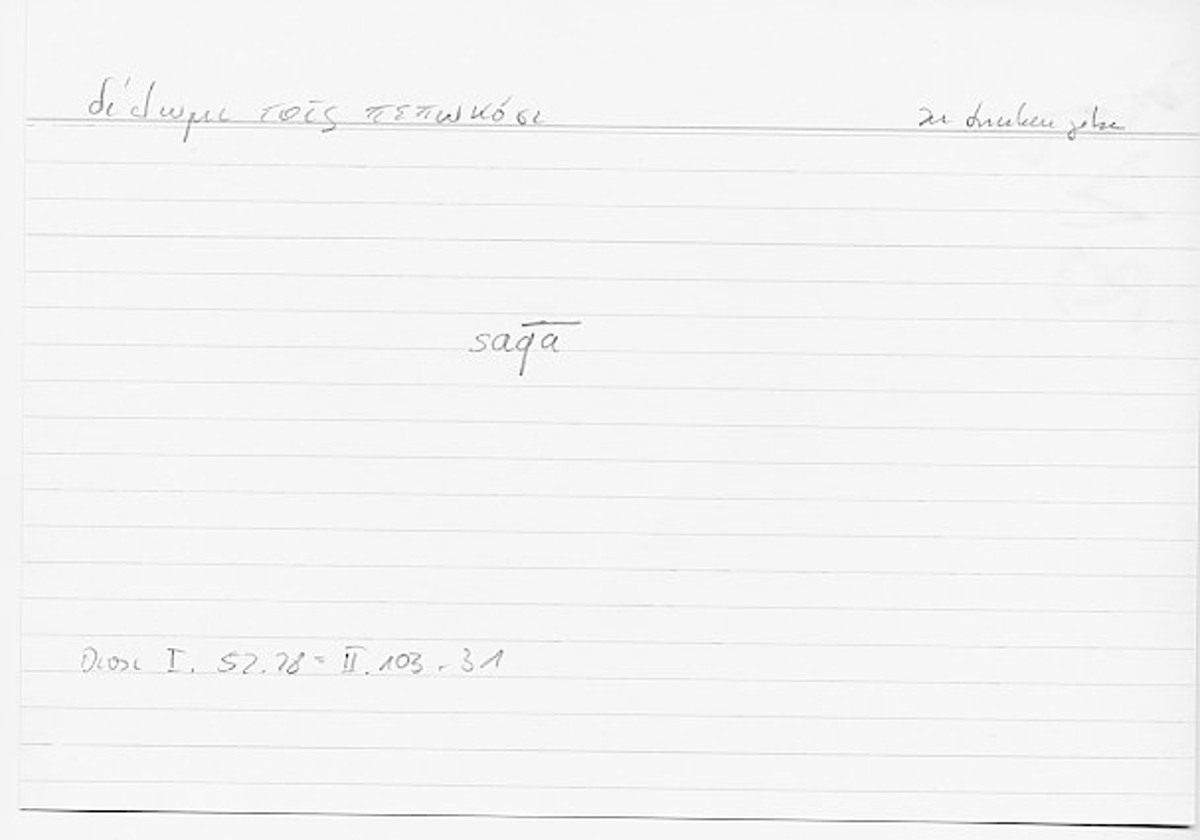 δίδωμι τοῖς πεπωκόσι zu trinken geben
saqā
Diosc I. 52.28 = II.103.31